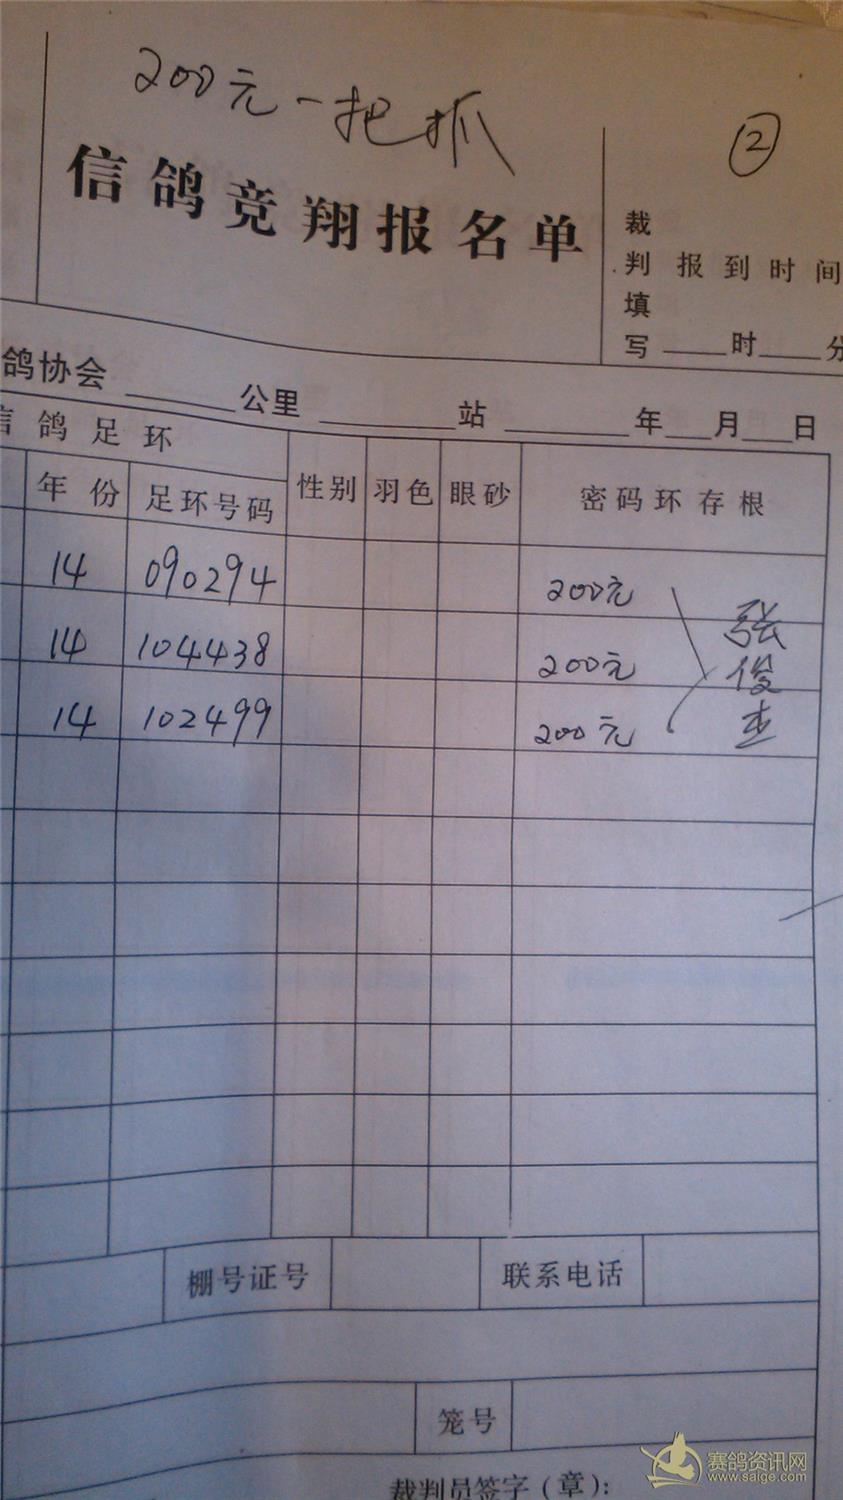 200元一把抓
②
信鸽竞翔报名单
裁判填写
报到时间
时 分
鸽协会 公里 站 年 月 日
信鸽足环
年份 足环号码 性别 羽色 眼砂 密码环存根
14 090294 200元
14 104438 200元
14 102499 200元
张俊杰
棚号证号 联系电话
笼号
裁判员签字(章):
赛鸽资讯网
www.saige.com